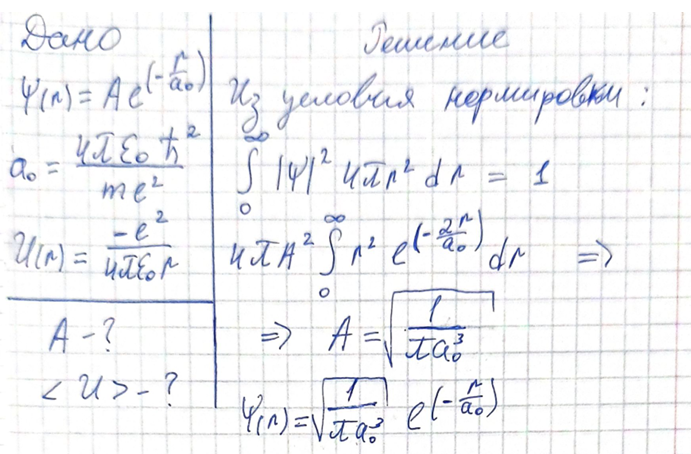 Дано
ψ(r) = A e^(-r/a₀)
a₀ = 4πε₀ ħ² / me²
U(r) = -e² / 4πε₀r
A - ?
< U > - ?
Решение
Из условия нормировки :
∫₀^∞ |ψ|² 4πr² dr = 1
4πA² ∫₀^∞ r² e^(-2r/a₀) dr =>
=> A = √(1/πa₀³)
ψ(r) = √(1/πa₀³) e^(-r/a₀)